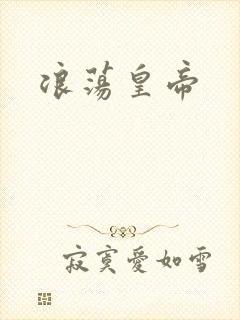 浪荡皇帝
寂寞愛如雪